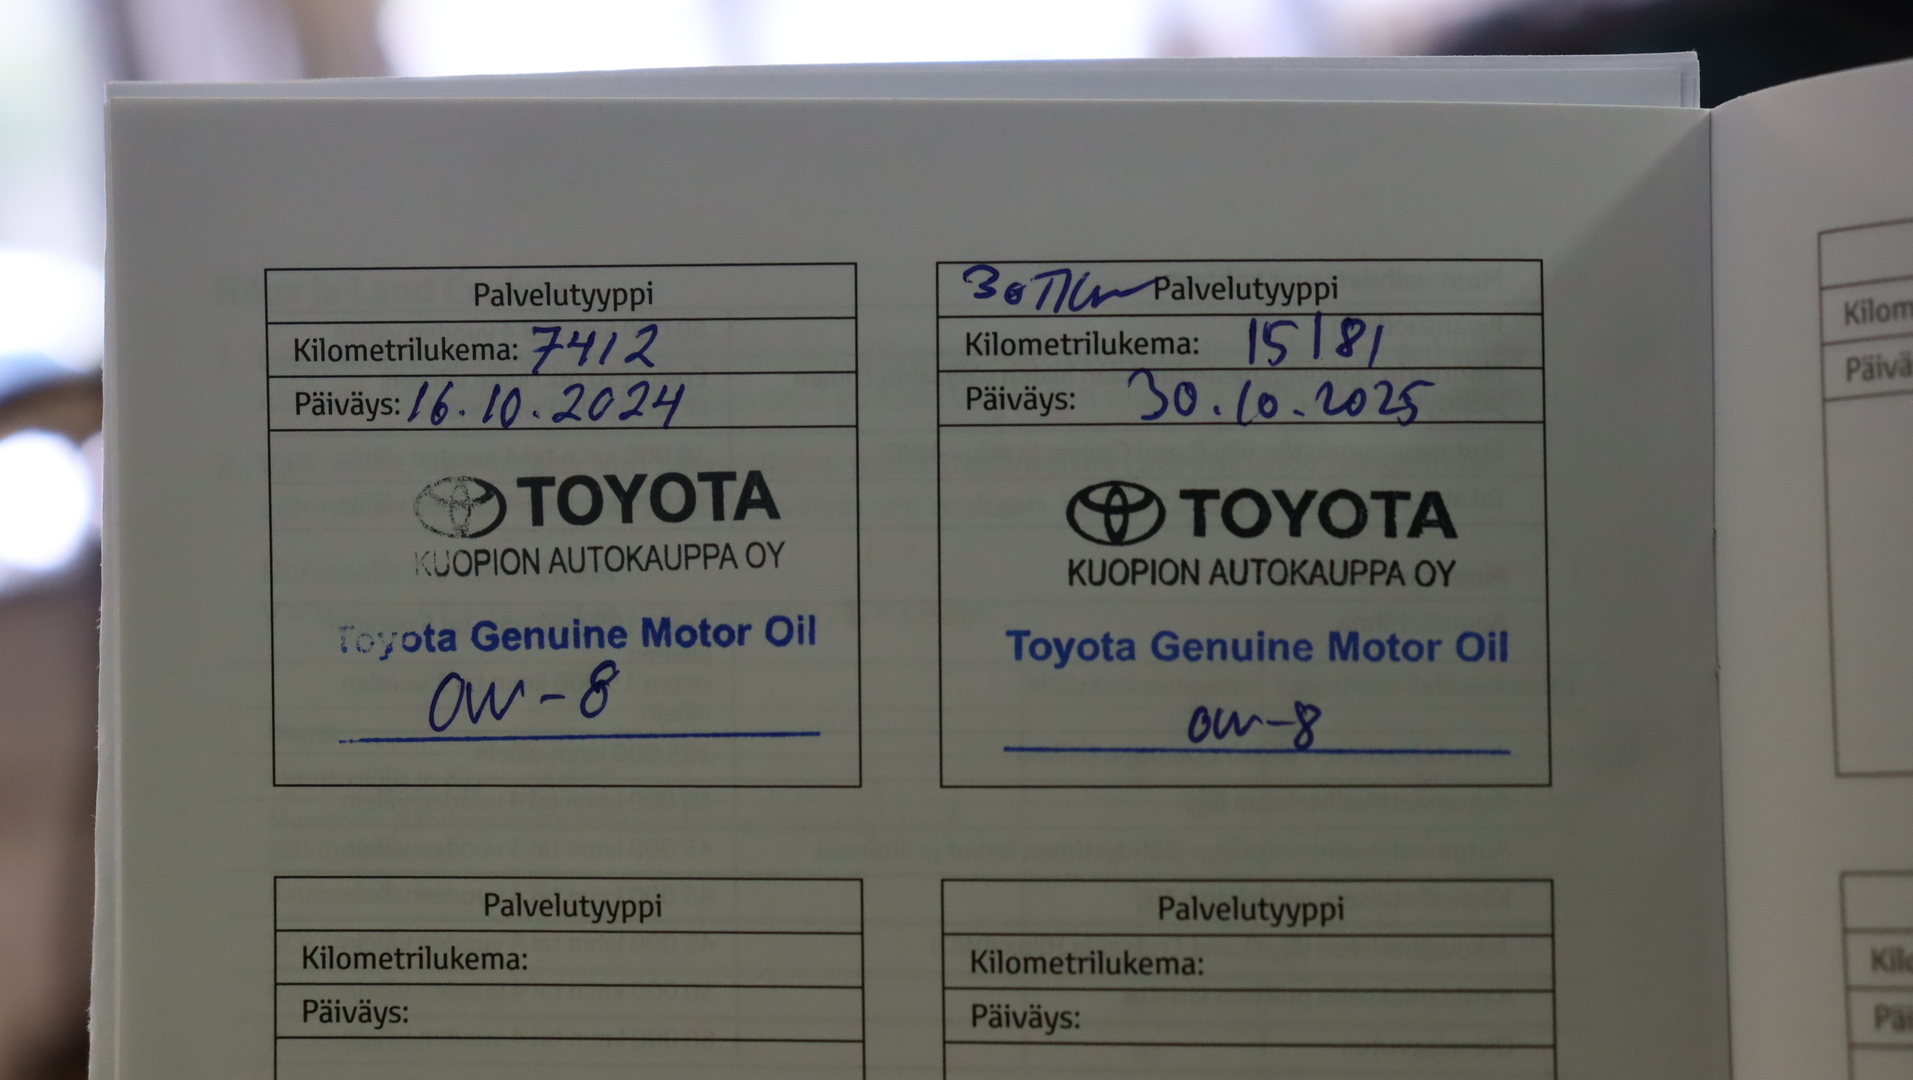 Palvelutyyppi
Kilometrilukema: 7412
Päiväys: 16.10.2024
TOYOTA
KUOPION AUTOKAUPPA OY
Toyota Genuine Motor Oil
0W-8
30Tkm Palvelutyyppi
Kilometrilukema: 15181
Päiväys: 30.10.2025
TOYOTA
KUOPION AUTOKAUPPA OY
Toyota Genuine Motor Oil
0W-8
Palvelutyyppi
Kilometrilukema:
Päiväys:
Palvelutyyppi
Kilometrilukema:
Päiväys:
Kilom
Päivä
Kilo
Päi